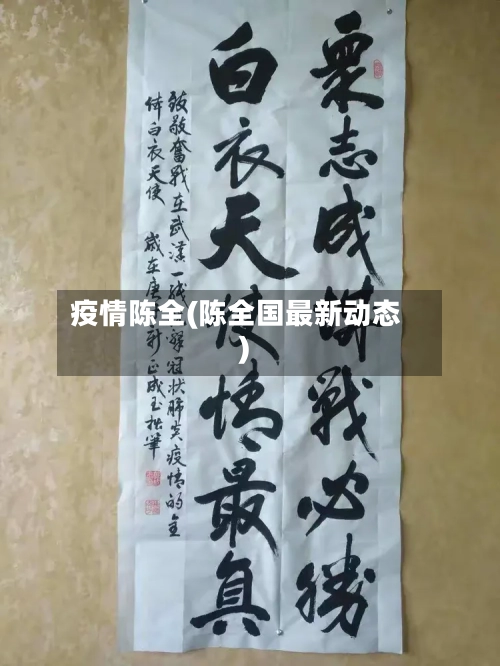 众志成城战必胜
白衣天使情最真
致敬奋战在武汉一线
冠状肺炎疫情的全
体白衣天使 岁在庚
正成玉拙笔
疫情陈全(陈全国最新动态
)